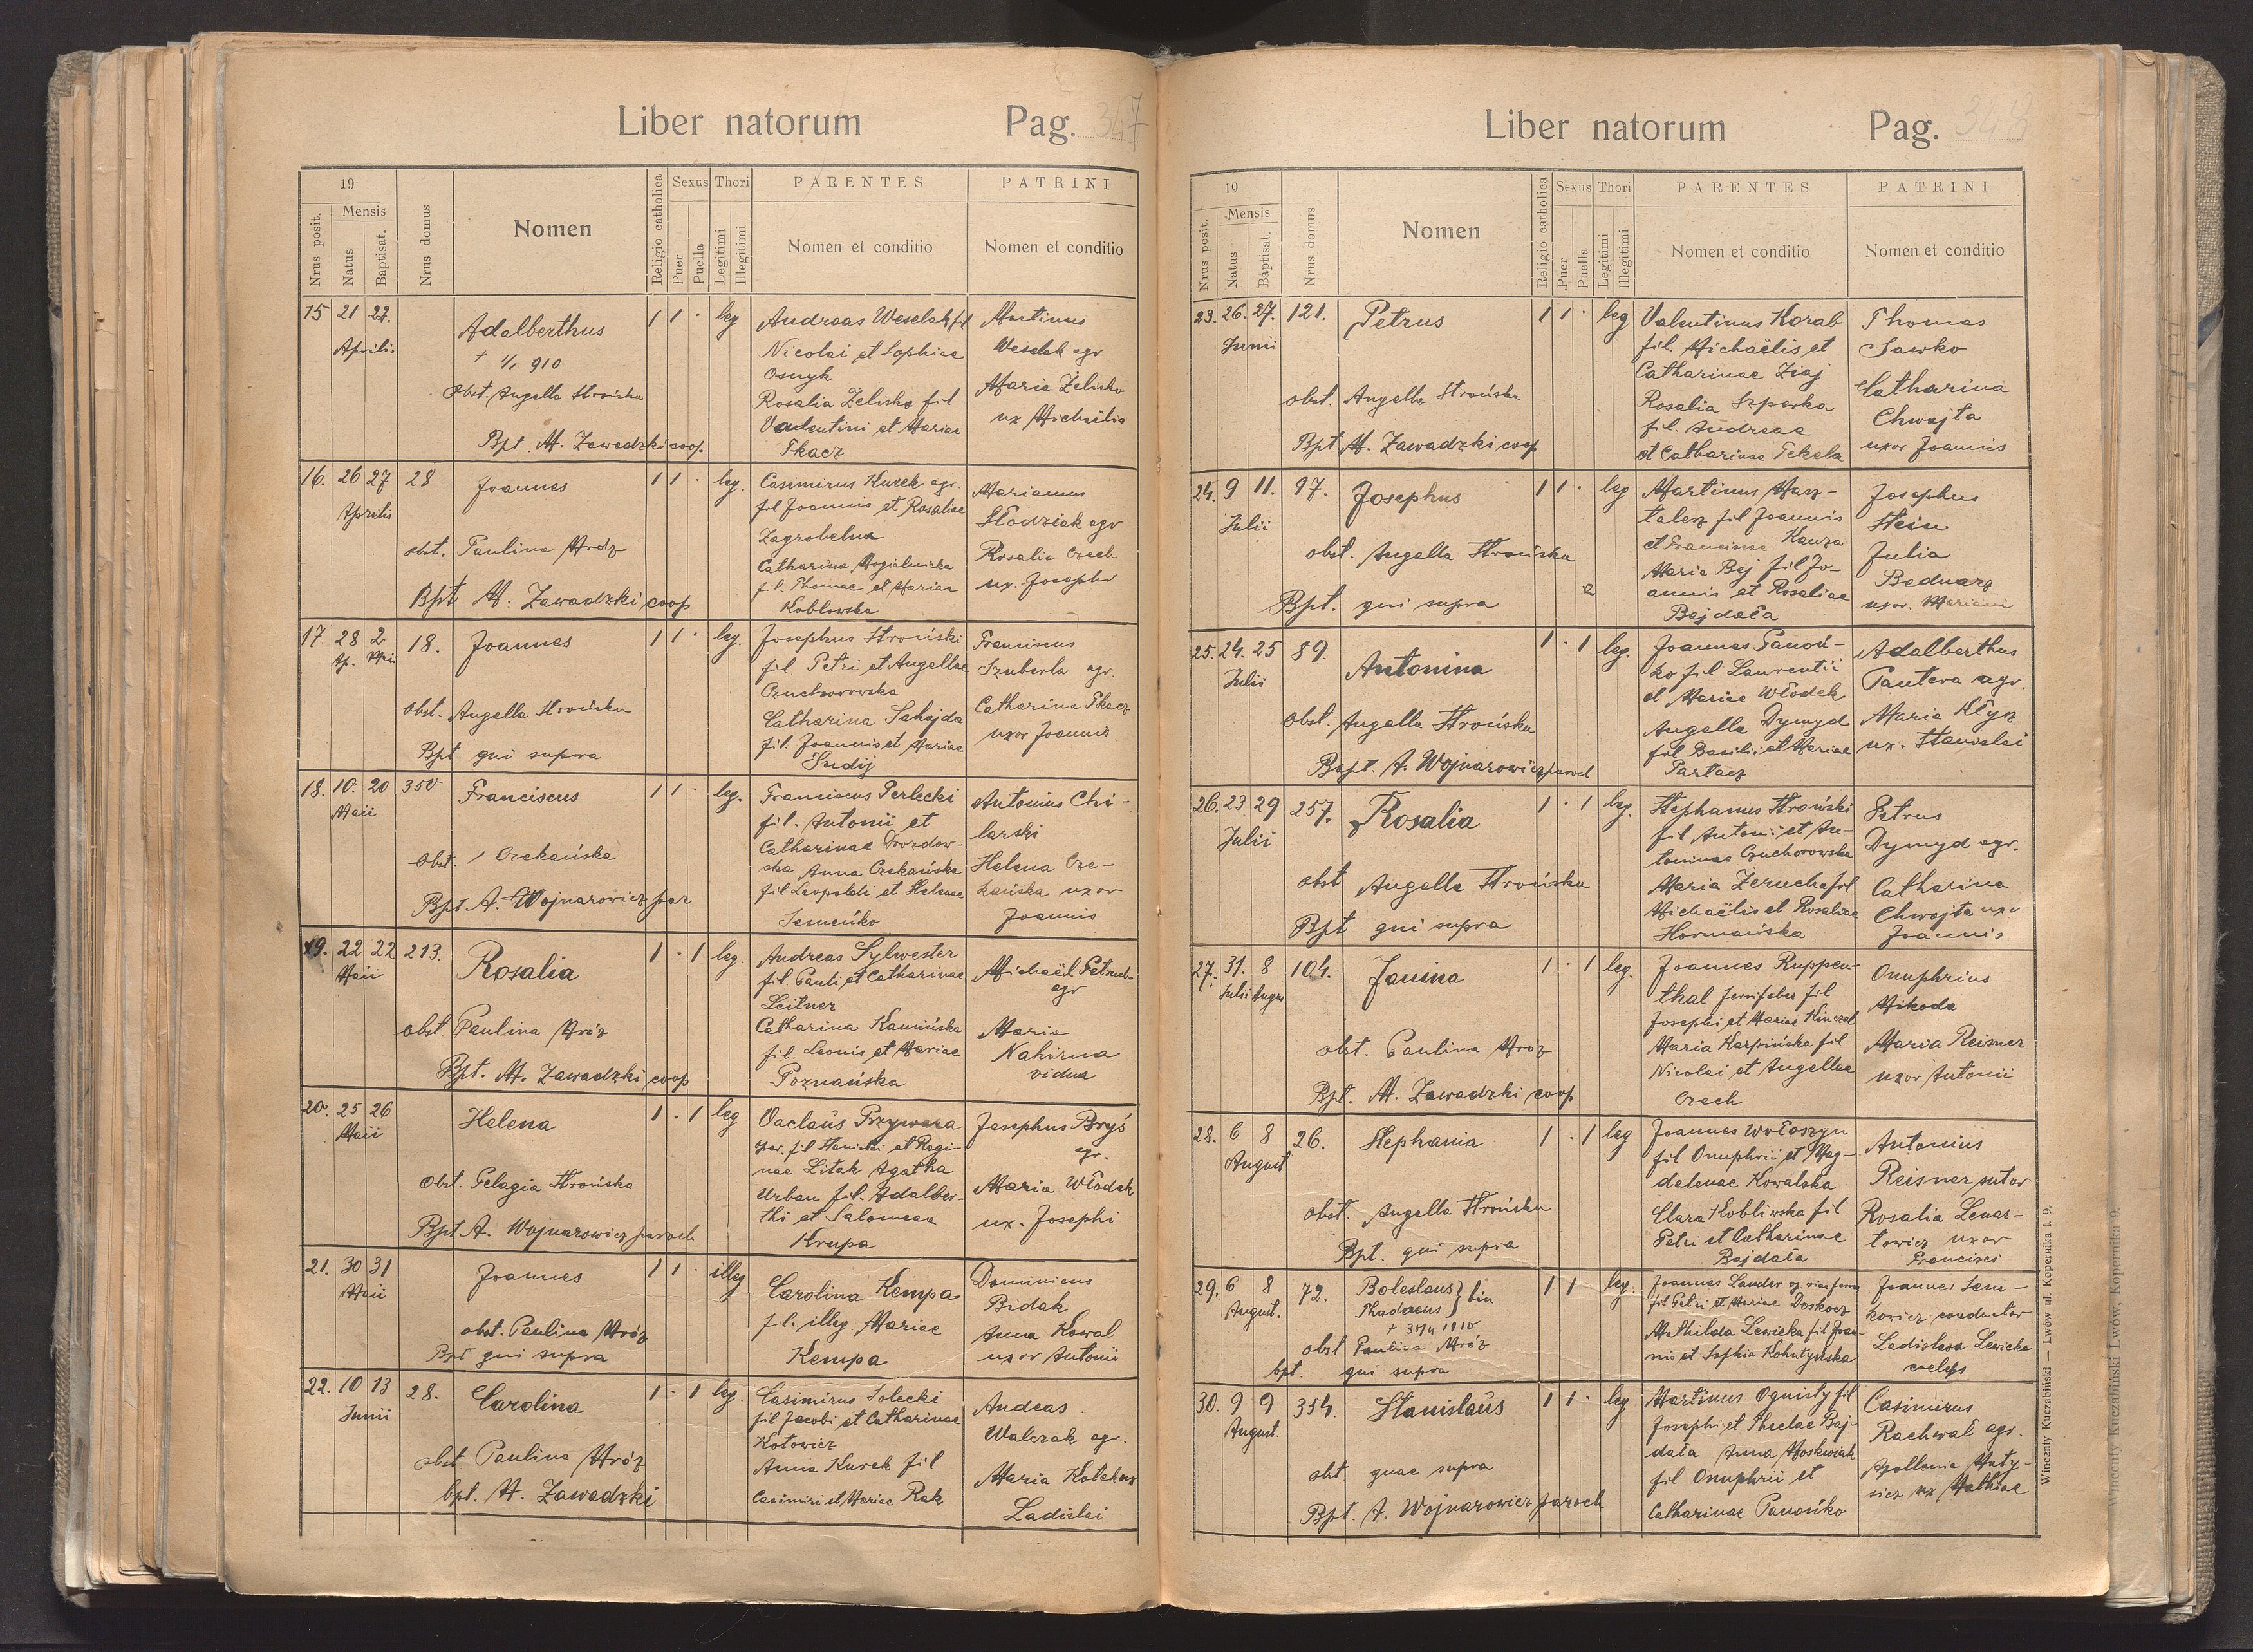 Liber natorum Pag. 347
19
Mensis
Nrus posit.
Natus
Baptisat.
Nrus domus
Nomen
Religio catholica
Sexus
Puer
Puella
Thori
Legitimi
Illegitimi
PARENTES
Nomen et conditio
PATRINI
Nomen et conditio
15 21 22.
Aprilis
Adalberthus
+ 1/1 910
Obst. Angella Strońska
Bpt. M. Zawadzki coop.
1 1 · leg
Andreas Weselak fil
Nicolai et Sophiae
Osnyk
Rosalia Zelisko fil
Valentini et Mariae
Tkacz
Martinus
Weselak agr
Maria Żelisko
ux Michaëlis
16. 26 27 28
Aprilis
Joannes
obst. Paulina Mróz
Bpt M. Zawadzki coop
1 1 · leg.
Casimirus Kurek agr.
fil Joannis et Rosaliae
Zagrobelna
Catharina Mogielnicka
fil. Thomae et Mariae
Koblowska
Marianus
Słodziak agr
Rosalia Czech
ux. Josephi
17. 28 2 18.
Ap. Maii
Joannes
Obst. Angella Strońska
Bpt qui supra
1 1 · leg.
Josephus Stroński
fil Petri et Angellae
Czuchorowska
Catharina Sahajda
fil. Joannis et Mariae
Sudij
Franciscus
Szuberla agr.
Catharina Tkacz
uxor Joannis
18. 10. 20 350
Maii
Franciscus
Obst. Czekańska
Bpt A. Wojnarowicz par
1 1 · leg.
Franciscus Perlecki
fil. Antonii et
Catharinae Drozdow-
ska Anna Czekańska
fil Leopoldi et Helenae
Semeńko
Antonius Chi-
larski
Helena Cze-
kańska uxor
Joannis
19. 22 22 213.
Maii
Rosalia
obst Paulina Mróz
Bpt. M. Zawadzki coop
1 · 1 leg.
Andreas Sylwester
fil. Pauli et Catharinae
Leitner
Catharina Kamińska
fil. Leonis et Mariae
Poznańska
Michaël Petruch
agr
Maria
Nahirna
vidua
20. 25 26
Maii
Helena
Obst. Pelagia Strońska
Bpt A. Wojnarowicz paroch
1 · 1 leg
Vaclaüs Przywara
fil et Regi-
nae Litak Agatha
Urban fil. Adalber-
thi et Salomeae
Krupa
Josephus Bryś
agr.
Maria Włodek
ux. Josephi
21. 30 31
Maii
Joannes
obst. Paulina Mróz
Bpt qui supra
1 1 · illeg
Carolina Kempa
fil. illeg. Mariae
Kempa
Dominicus
Bidak
Anna Kowal
uxor Antonii
22. 10 13 28.
Junii
Carolina
obst Paulina Mróz
bpt. M. Zawadzki
1 · 1 leg.
Casimirus Solecki
fil Jacobi et Catharinae
Kotowicz
Anna Kurek fil
Casimiri et Mariae Rak
Andeas
Walczak agr.
Maria
Ladislai
Liber natorum Pag. 348
19
Mensis
Nrus posit.
Natus
Baptisat.
Nrus domus
Nomen
Religio catholica
Sexus
Puer
Puella
Thori
Legitimi
Illegitimi
PARENTES
Nomen et conditio
PATRINI
Nomen et conditio
23. 26. 27. 121.
Junii
Petrus
obst. Angella Strońska
Bpt M. Zawadzki coop
1 1 · leg
Valentinus Korab
fil. Michaëlis et
Catharinae Ziaj
Rosalia Szparka
fil. Andreae
et Catharinae Tekela
Thomas
Sawko
Catharina
Chwojta
uxor Joannis
24. 9 11. 97.
Julii
Josephus
obst. Angella Strońska
Bpt. qui supra
1 1 · leg
Martinus Masz-
talerz fil Joannis
et Franciscae Kauza
Maria Bej fil Jo-
annis et Rosaliae
Bajdała
Josephus
Stein
Julia
Bednarz
uxor. Mariani
25. 24. 25 89.
Julii
Antonina
obst. Angella Strońska
Bapt. A. Wojnarowicz paroch
1 · 1 leg.
Joannes Panoń-
ko fil Laurentii
et Mariae Włodek
Angella Dymyd
fil Basilii et Mariae
Partacz
Adalberthus
Pantera agr.
Maria Kłyz
ux. Stanislai
26. 23 29 257.
Julii
Rosalia
obst Angella Strońska
Bpt qui supra
1 · 1 leg.
Stephanus Stroński
fil Antonii et An-
toninae Czuchorowska
Maria Zerucha fil
Michaëlis et Rosaliae
Hormańska
Petrus
Dymyd agr.
Catharina
Chwojta uxor
Joannis
27. 31. 8 104.
Julii Augus
Janina
obst. Paulina Mróz
Bpt. M. Zawadzki coop
1 · 1 leg.
Joannes Ruppen-
thal ferrifaber fil
Josephi et Mariae Kinczel
Maria Karpińska fil
Nicolai et Angellae
Czech
Onuphrius
Mikoda
Maria Reisner
uxor Antonii
28. 6 8 26.
August
Stephania
obst. Angella Strońska
Bpt. qui supra
1 · 1 leg
Joannes Wołoszyn
fil Onuphrii et Mag-
dalenae Kowalska
Clara Kobliwska fil
Petri et Catharinae
Bajdała
Antonius
Reisner sutor
Rosalia Lenar-
towicz uxor
Francisci
29. 6 8 72.
August.
Boleslaus } bin
Thadaeus
+ 31/4 1910
obst Paulina Mróz
bpt. qui supra
1 1 leg.
Joannes Lander
fil Petri et Mariae Doskocz
Mathilda Lewicka fil Joan-
nis et Sophia Kohutyńska
Joannes Sem-
kowicz conductor
Ladislava Lewicka
caelebs
30. 9 9 354.
August.
Stanislaüs
obst quae supra
Bpt. A. Wojnarowicz paroch
1 1 · leg
Martinus Ognisty fil
Josephi et Theclae Baj-
data Anna Moskwiak
fil Onuphrii et
Catharinae Panońko
Casimirus
Rachwał agr.
Apollonia Maty-
siez ux Mathiae
Wincenty Kuczabiński — Lwów ul. Kopernika l. 9.
Wincenty Kuczabiński Lwów, Kopernika 9.